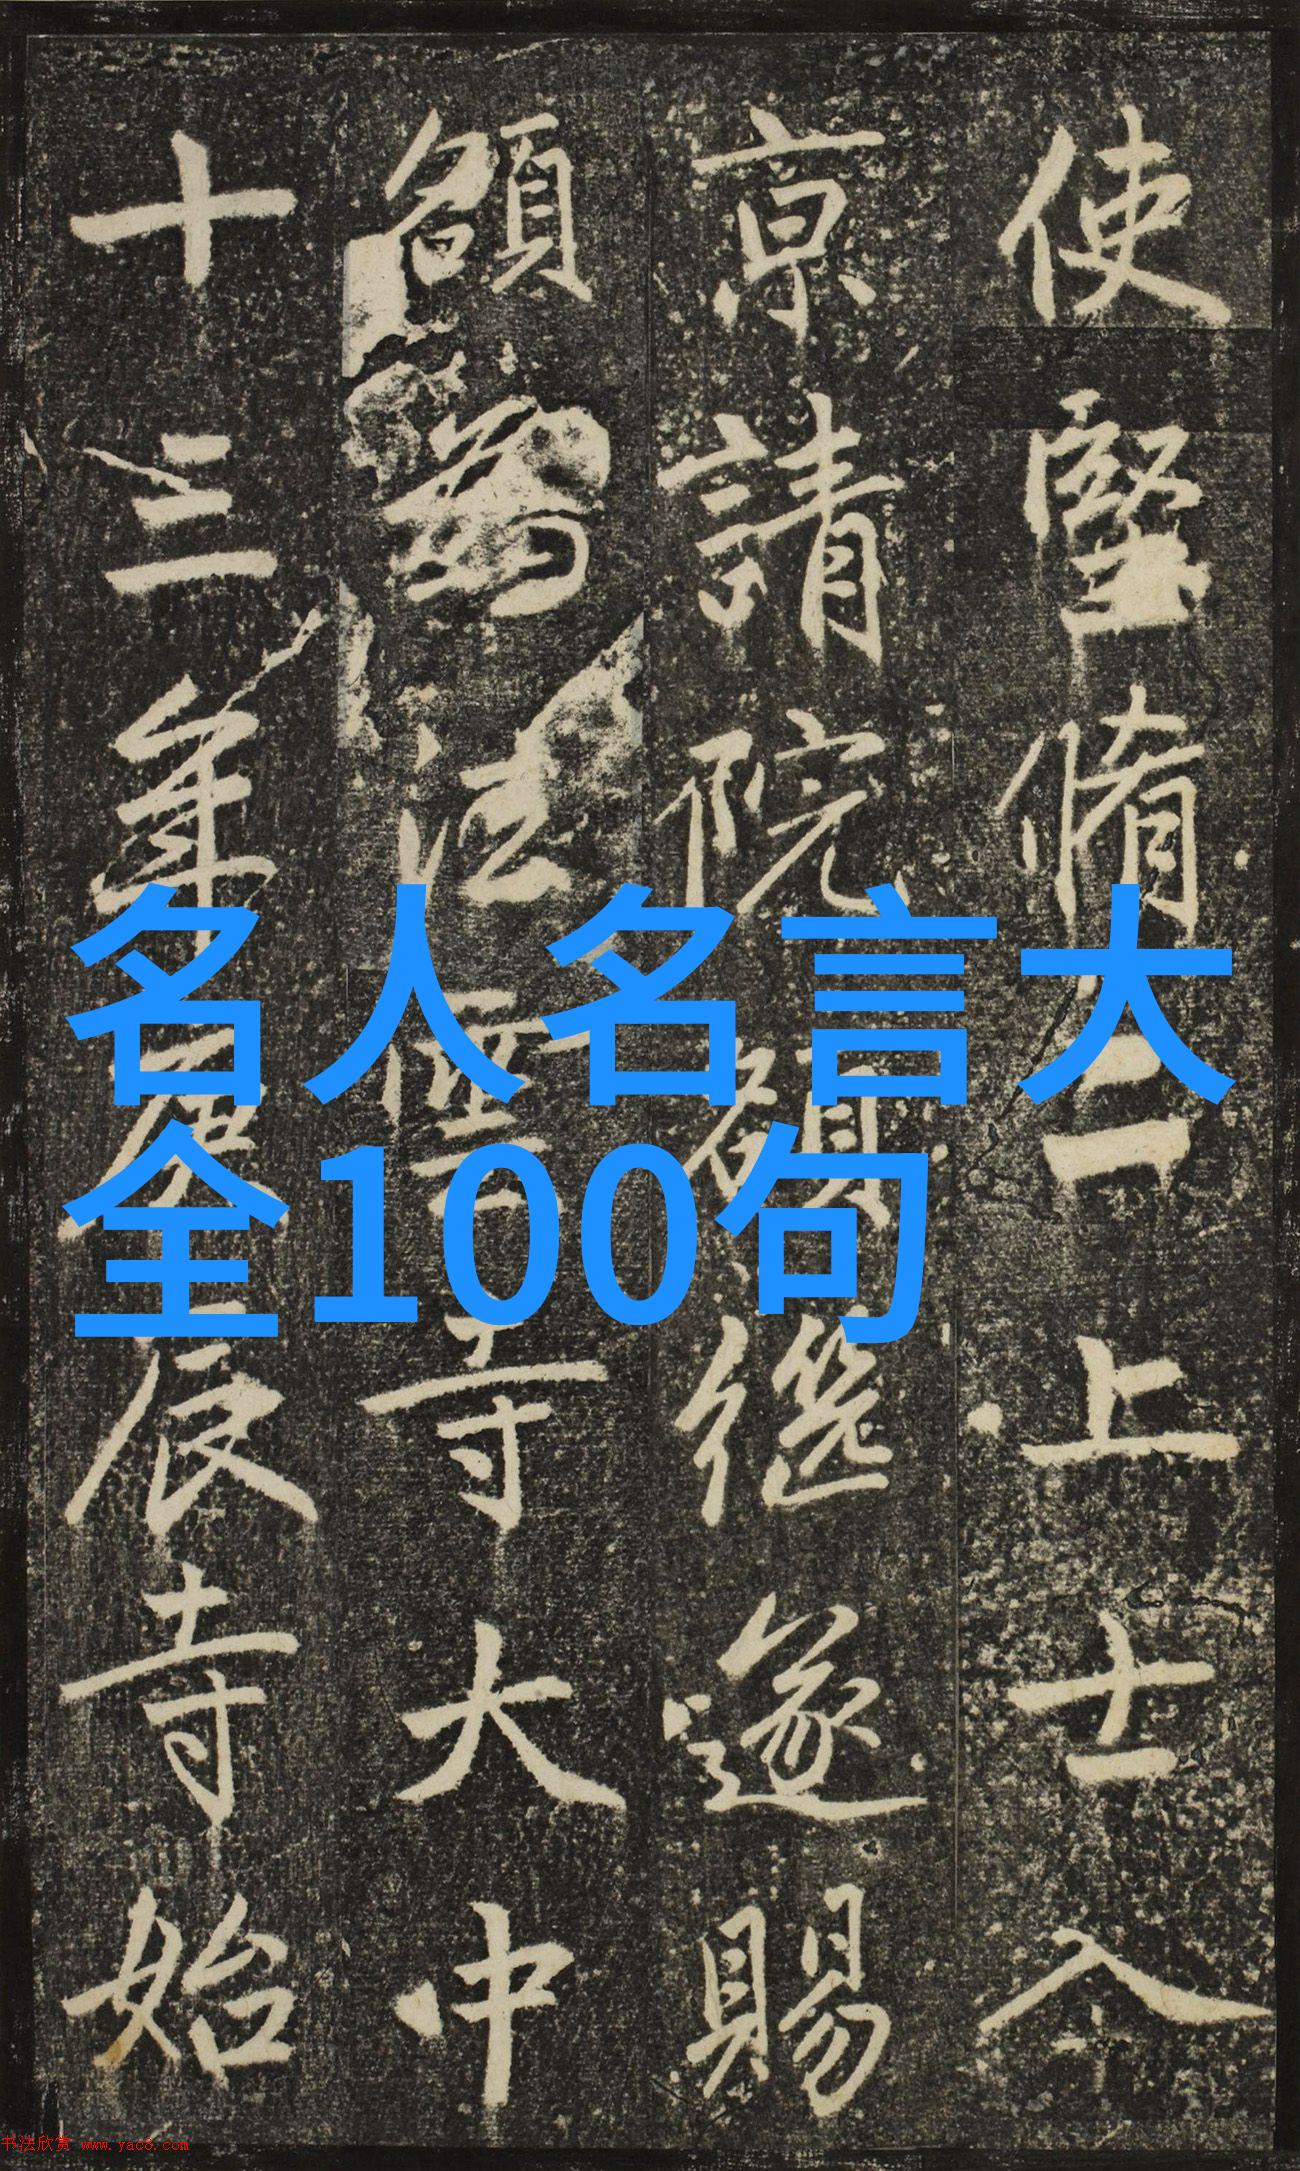 使堅脩二上士入
京請院額繼遂賜
額爲法寺大中
十三年庚辰寺始
名人名言大
全100句
书法欣赏 www.yac8.com